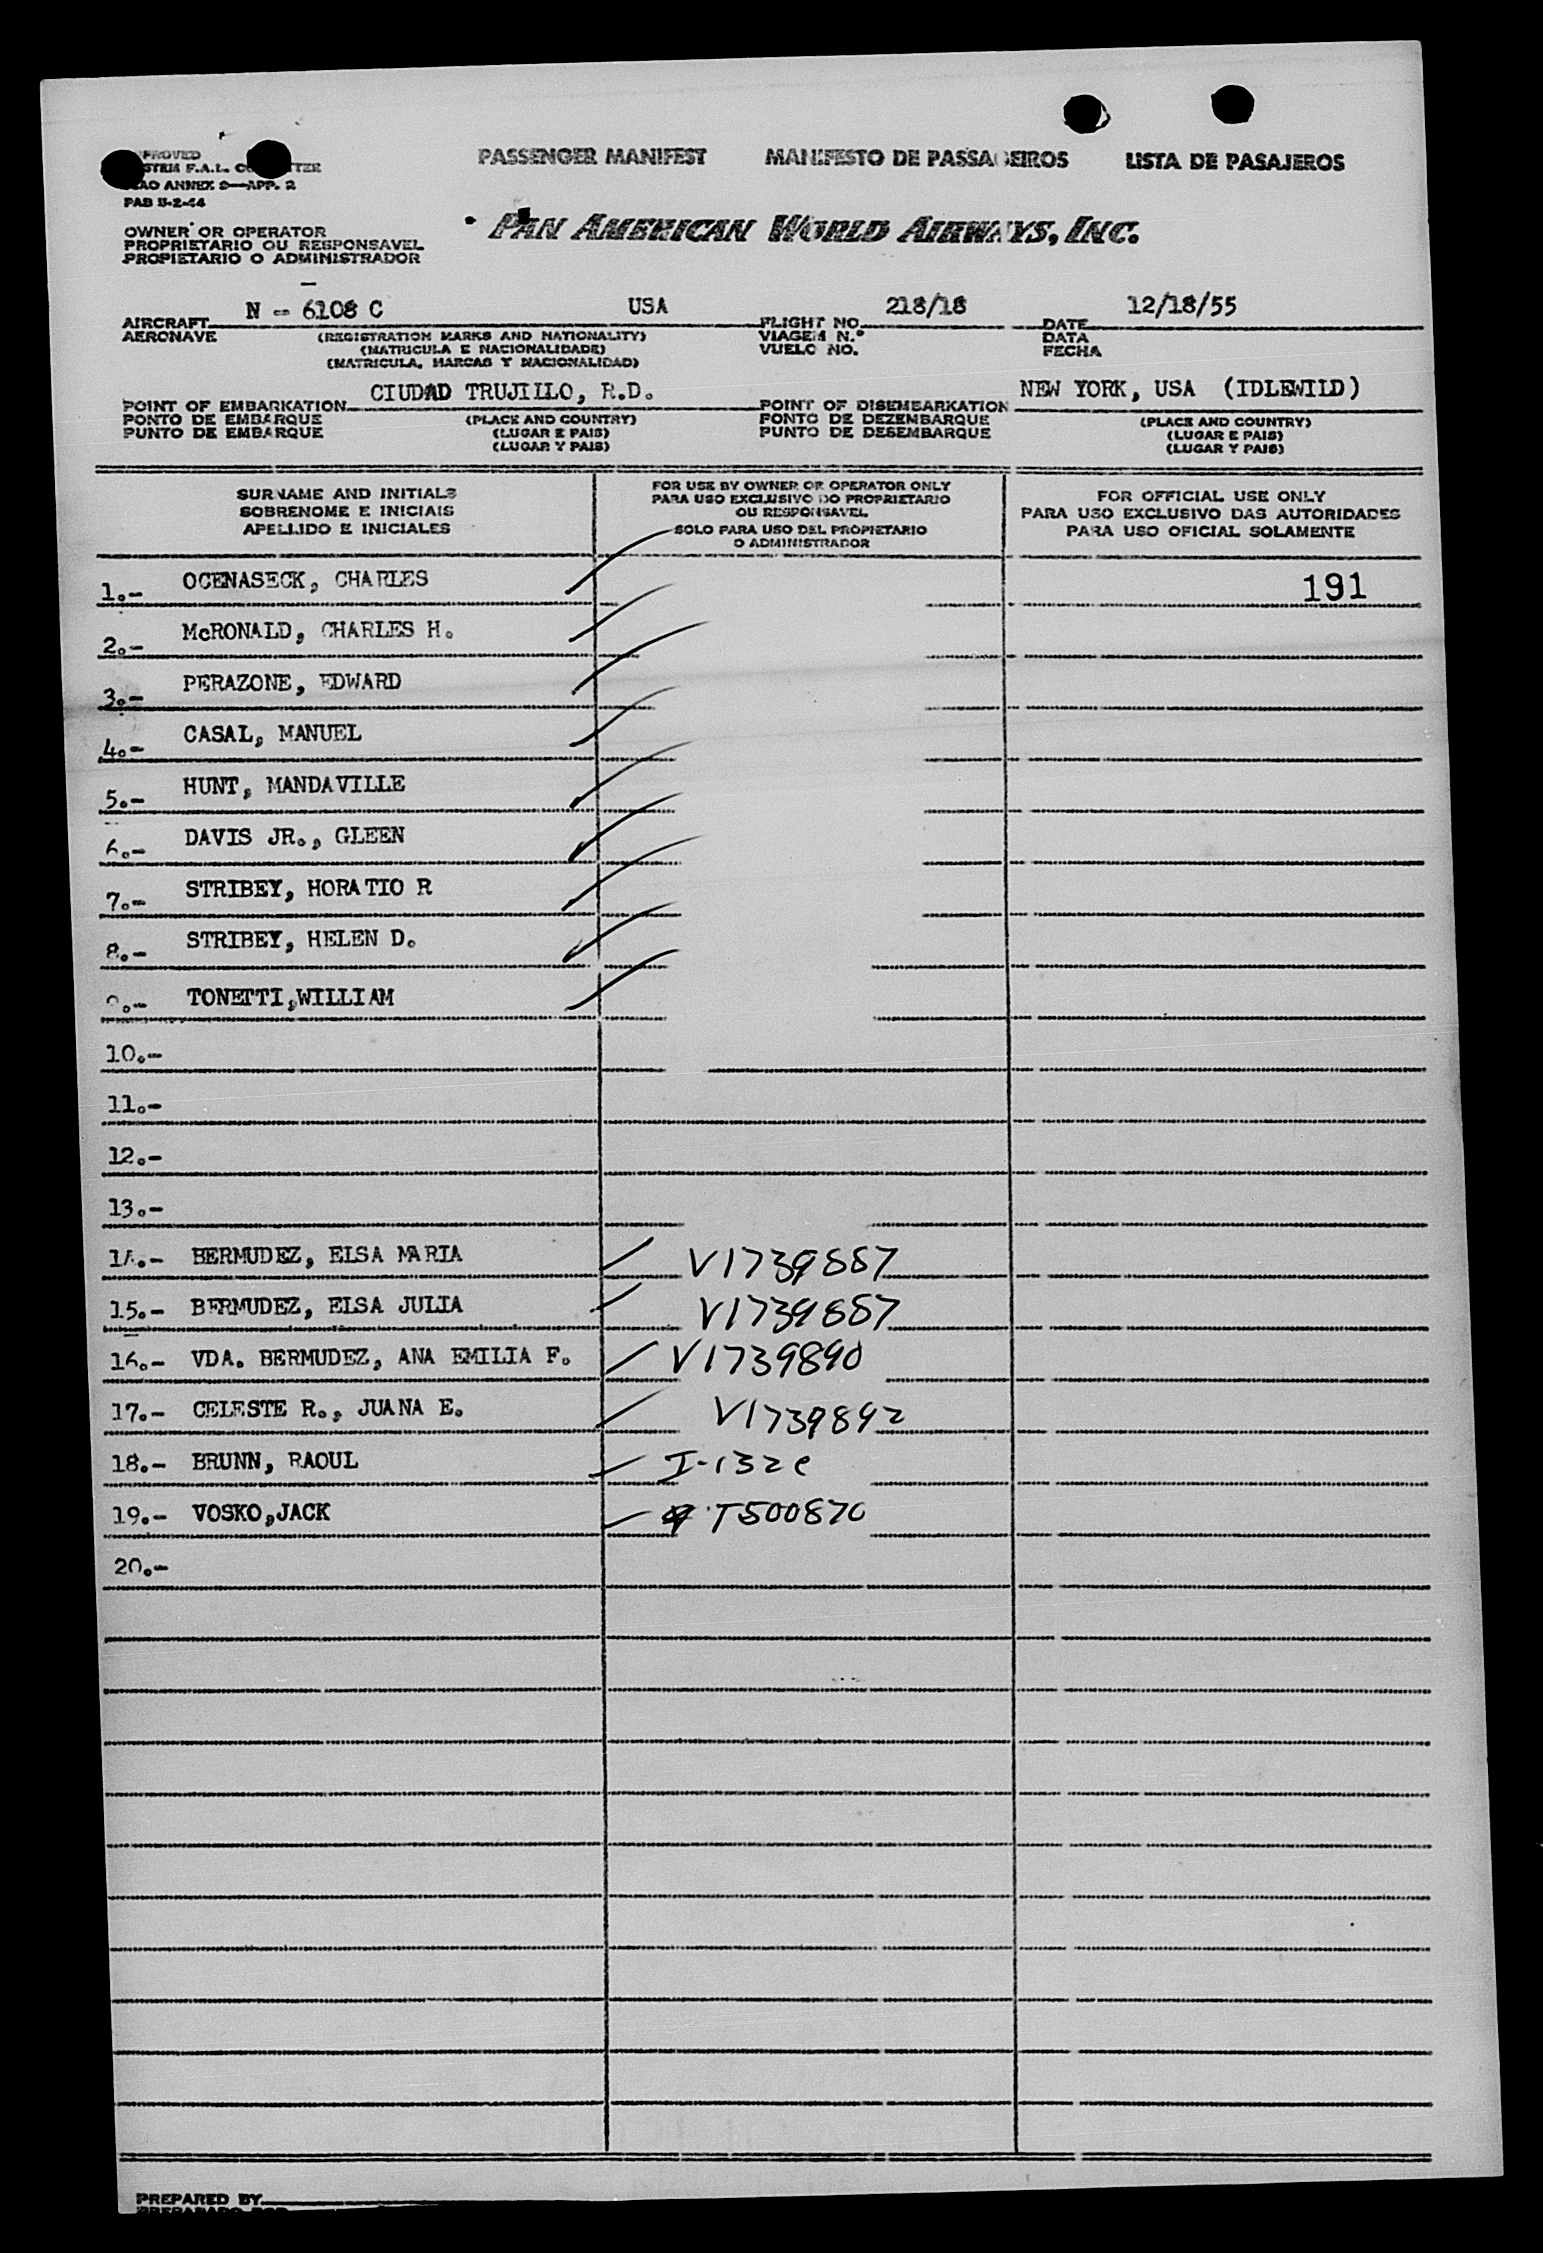 PASSENGER MANIFEST MANIFESTO DE PASSAGEIROS LISTA DE PASAJEROS
ANNEX 9—APP. 2
OWNER OR OPERATOR
PROPRIETARIO OU RESPONSAVEL
PROPIETARIO O ADMINISTRADOR
PAN AMERICAN WORLD AIRWAYS, INC.
AIRCRAFT N - 6108 C USA FLIGHT NO. 218/18 DATE 12/18/55
AERONAVE (REGISTRATION MARKS AND NATIONALITY) VIAGEM N.º DATA
(MATRICULA E NACIONALIDADE) VUELO NO. FECHA
(MATRICULA, MARCAS Y NACIONALIDAD)
POINT OF EMBARKATION CIUDAD TRUJILLO, R.D. POINT OF DISEMBARKATION NEW YORK, USA (IDLEWILD)
PONTO DE EMBARQUE (PLACE AND COUNTRY) PONTO DE DEZEMBARQUE (PLACE AND COUNTRY)
PUNTO DE EMBARQUE (LUGAR E PAIS) PUNTO DE DESEMBARQUE (LUGAR E PAIS)
(LUGAR Y PAIS) (LUGAR Y PAIS)
SURNAME AND INITIALS
SOBRENOME E INICIAIS
APELLIDO E INICIALES
FOR USE BY OWNER OR OPERATOR ONLY
PARA USO EXCLUSIVO DO PROPRIETARIO
OU RESPONSAVEL
SOLO PARA USO DEL PROPIETARIO
O ADMINISTRADOR
FOR OFFICIAL USE ONLY
PARA USO EXCLUSIVO DAS AUTORIDADES
PARA USO OFICIAL SOLAMENTE
1.- OCENASECK, CHARLES 191
2.- McRONALD, CHARLES H.
3.- PERAZONE, EDWARD
4.- CASAL, MANUEL
5.- HUNT, MANDAVILLE
6.- DAVIS JR., GLEEN
7.- STRIBEY, HORATIO R
8.- STRIBEY, HELEN D.
9.- TONETTI,WILLIAM
10.-
11.-
12.-
13.-
14.- BERMUDEZ, ELSA MARIA V1739887
15.- BERMUDEZ, ELSA JULIA V1739887
16.- VDA. BERMUDEZ, ANA EMILIA F. V1739890
17.- CELESTE R., JUANA E. V1739892
18.- BRUNN, RAOUL I-132e
19.- VOSKO,JACK T500870
20.-
PREPARED BY